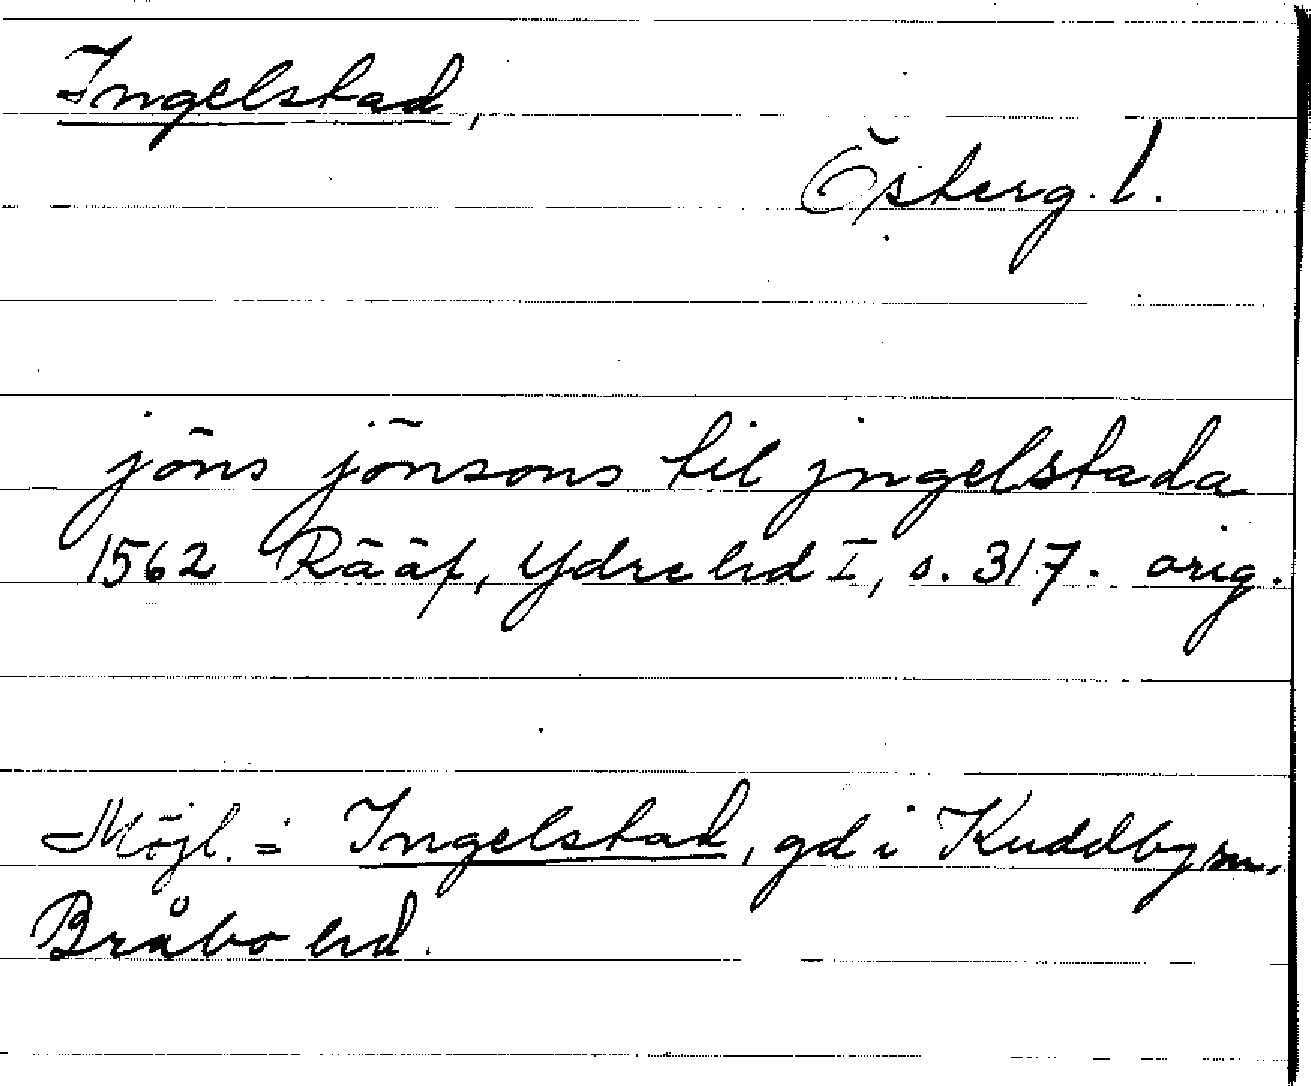 Ingelstad,
Österg. l.
jöns jönsons til jngelstada
1562 Rääf, Ydre hd I, s. 317. orig.
Möjl. = Ingelstad, gd i Kuddby sn,
Bråbo hd.